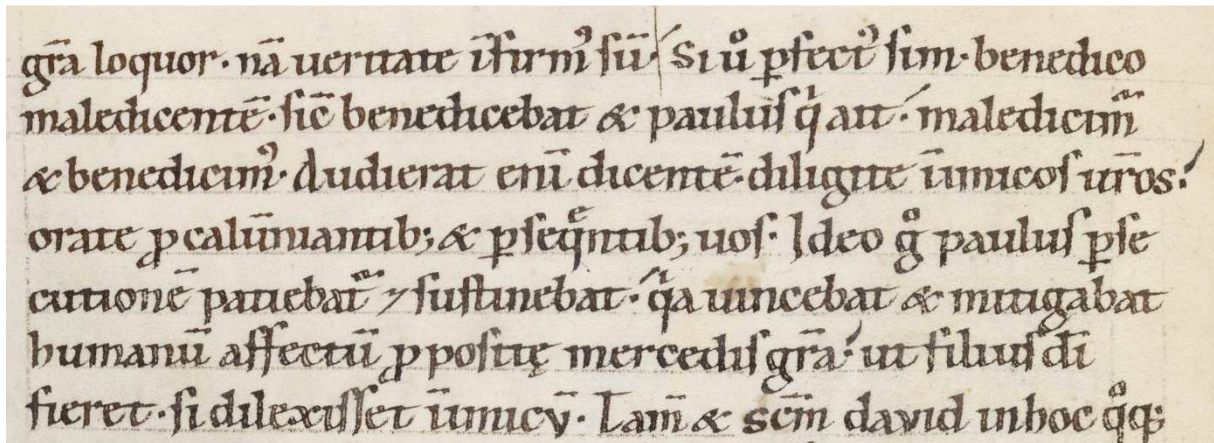 gr̄a loquor· nā ueritate īfirmꝰ sū· Si uͦ ꝑfectꝰ sim· benedico
maledicentē· sic̄ benedicebat & paulus qͥ ait· maledicim̃
& benedicimꝰ· Audierat enī dicentē· diligite inimicos ur̄os·
orate ꝓ calūniantib; & ꝑseqͤntib; uos· Ideo gͦ paulus ꝑse
cutionē patiebat᷑ ⁊ sustinebat· qͥa uincebat & mitigabat
humanū affectū ꝓpositę mercedis gr̄a· ut filius dī
fieret· si dilexisset inimicū· Tam̄ & scm̄ dauid in hoc qͦq;